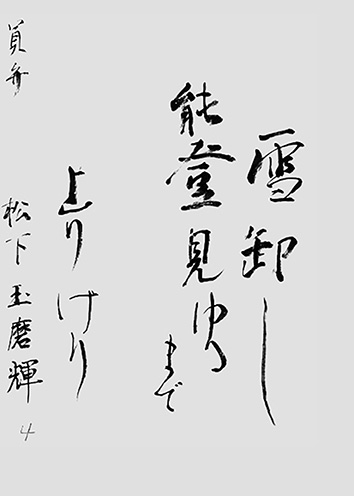 雪卸し
能登見ゆるまで
上りけり
員弁
松下玉磨輝
4